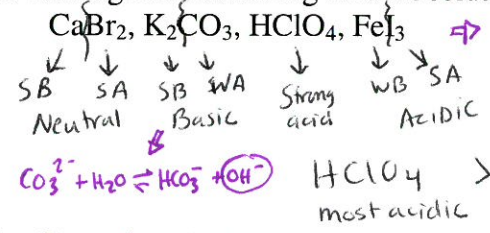 CaBr₂, K₂CO₃, HClO₄, FeI₃ ⇒
SB SA SB WA Strong acid WB SA
Neutral Basic Acidic
CO₃²⁻ + H₂O ⇌ HCO₃⁻ + OH⁻ HClO₄ >
most acidic